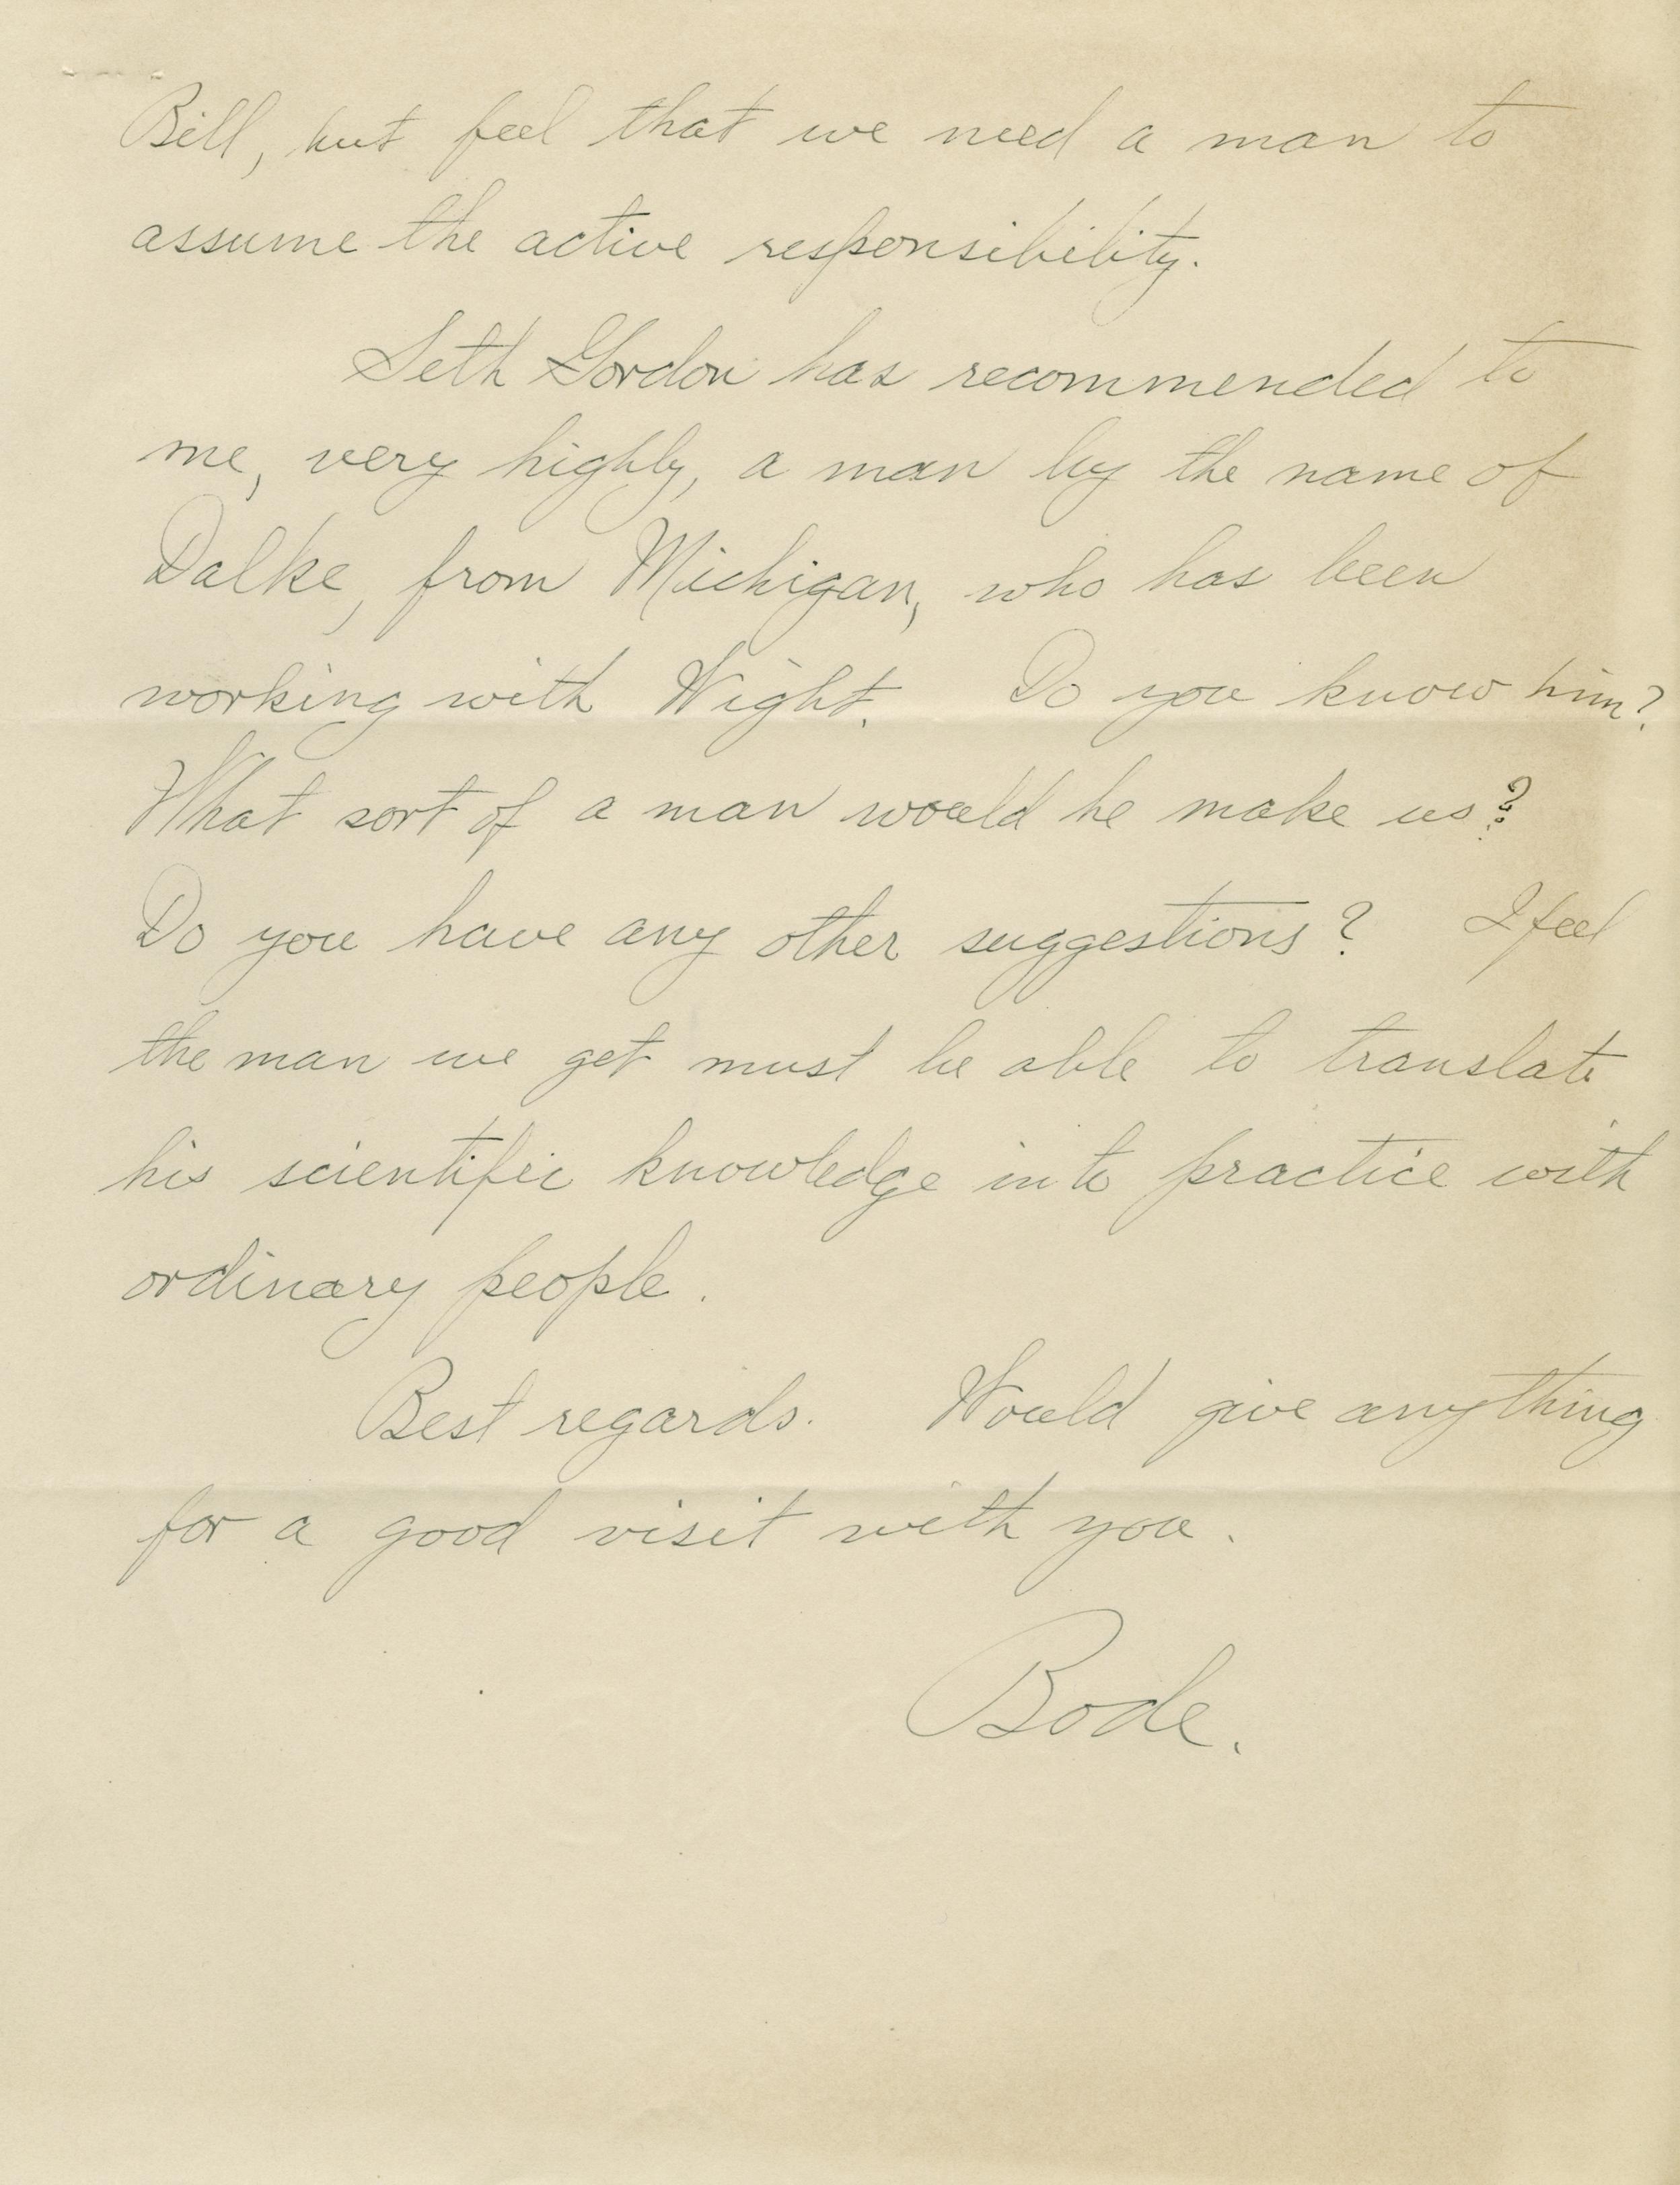 Bill, but feel that we need a man to
assume the active responsibility.
Seth Gordon has recommended to
me, very highly, a man by the name of
Dalke, from Michigan, who has been
working with Wight. Do you know him?
What sort of a man would he make us?
Do you have any other suggestions? I feel
the man we get must be able to translate
his scientific knowledge into practice with
ordinary people.
Best regards. Would give anything
for a good visit with you.
Bode.